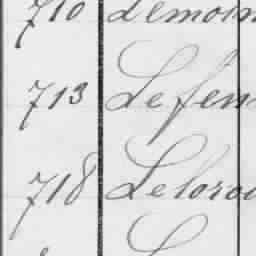 710 Lemoin
713 Lefen
718 Leloro